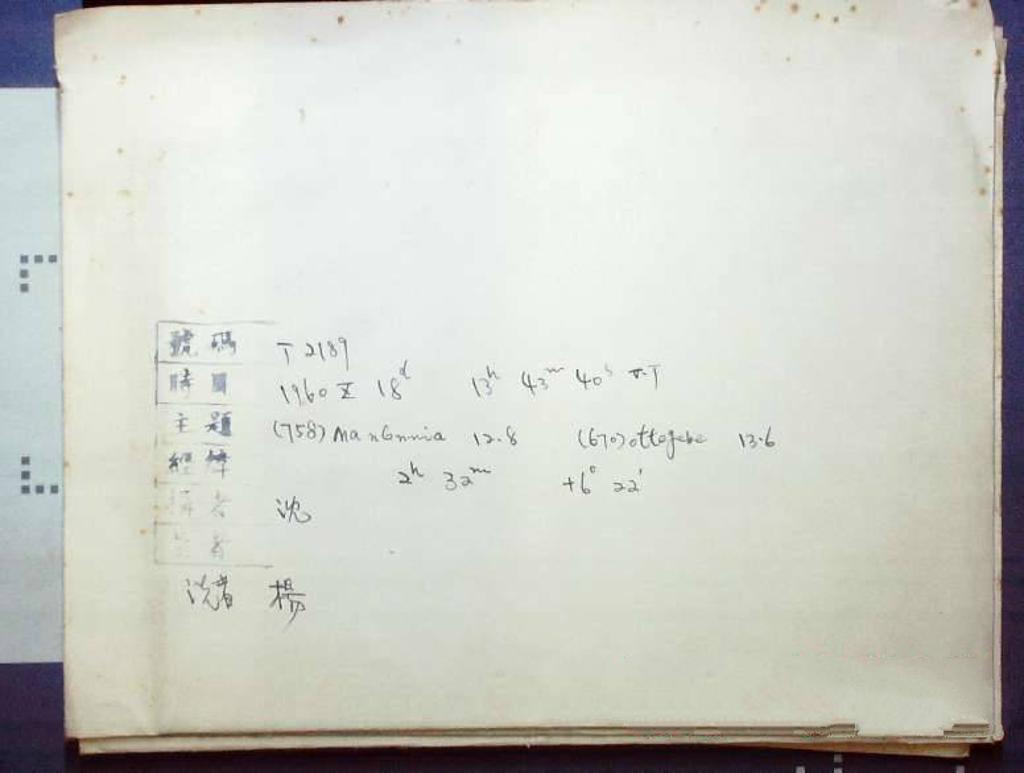 號碼 T 2189
時間 1960 X 18d 13h 43m 40s U.T
主題 (758) Mancunia 12.8 (670) Ottegebe 13.6
經緯 2h 32m +6° 22'
攝者 沈
者
洗者 楊